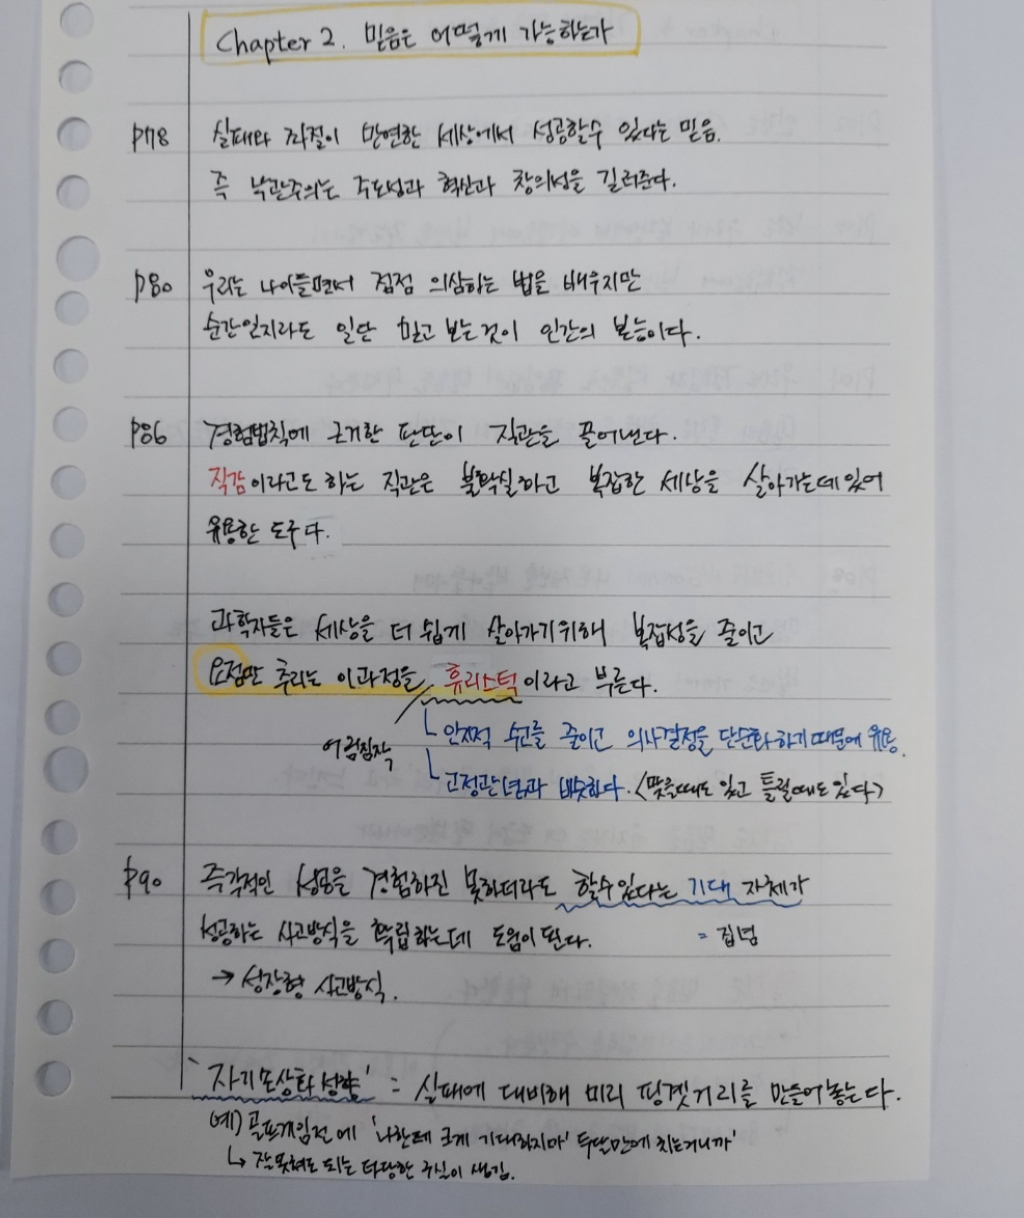 Chapter 2. 믿음은 어떻게 가능하는가
P78 실패와 좌절이 만연한 세상에서 성공할수 있다는 믿음.
즉 낙관주의는 주도성과 혁신과 창의성을 길러준다.
P80 우리는 나이들면서 점점 의심하는 법을 배우지만
순간일지라도 일단 믿고 보는것이 인간의 본능이다.
P86 경험법칙에 근거한 판단이 직관을 끌어낸다.
직감이라고도 하는 직관은 불확실하고 복잡한 세상을 살아가는데있어
유용한 도구다.
과학자들은 세상을 더 쉽게 살아가기위해 복잡성을 줄이고
요점만 추리는 이과정을 휴리스틱이라고 부른다.
어림짐작
인지적 수고를 줄이고 의사결정을 단순화하기때문에 유용.
고정관념과 비슷하다. <맞을때도 있고 틀릴때도있다>
P90 즉각적인 성공을 경험하진 못하더라도 할수있다는 기대 자체가
성공하는 사고방식을 확립하는데 도움이 된다. = 집념
→ 성장형 사고방식.
'자기불구화 성향' = 실패에 대비해 미리 핑곗거리를 만들어놓는다.
예) 골프게임전에 '나한테 크게 기대하지마' 두달만에 치는거니까'
↳ 잘못쳐도 되는 타당한 구실이 생김.